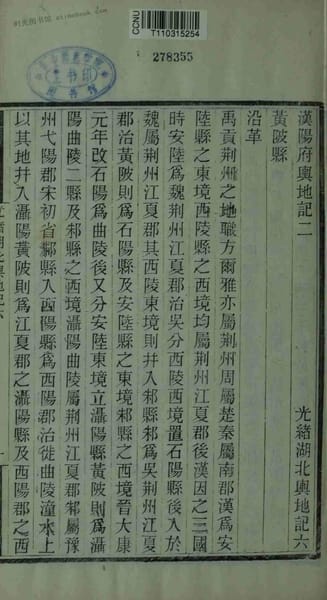 CCNU
T110315254
278355
漢陽府輿地記二
光緒湖北輿地記六
黃陂縣
沿革
禹貢荆州之地職方爾雅亦屬荆州周屬楚秦屬南郡漢爲安
陸縣之東境西陵縣之西境均屬荆州江夏郡後漢因之三國
時安陸爲魏荆州江夏郡治吳分西陵西境置石陽縣後入於
魏屬荆州江夏郡其西陵東境則幷入邾縣邾爲吳荆州江夏
郡治黃陂則爲石陽縣及安陸縣之東境邾縣之西境晉太康
元年改石陽爲曲陵後又分安陸東境立灄陽縣黃陂則爲灄
陽曲陵二縣及邾縣之西境灄陽曲陵屬荆州江夏郡邾屬豫
州弋陽郡宋初省邾縣入西陽縣爲西陽郡治徙曲陵潼水上
以其地幷入灄陽黃陂則爲江夏郡之灄陽縣及西陽郡之西